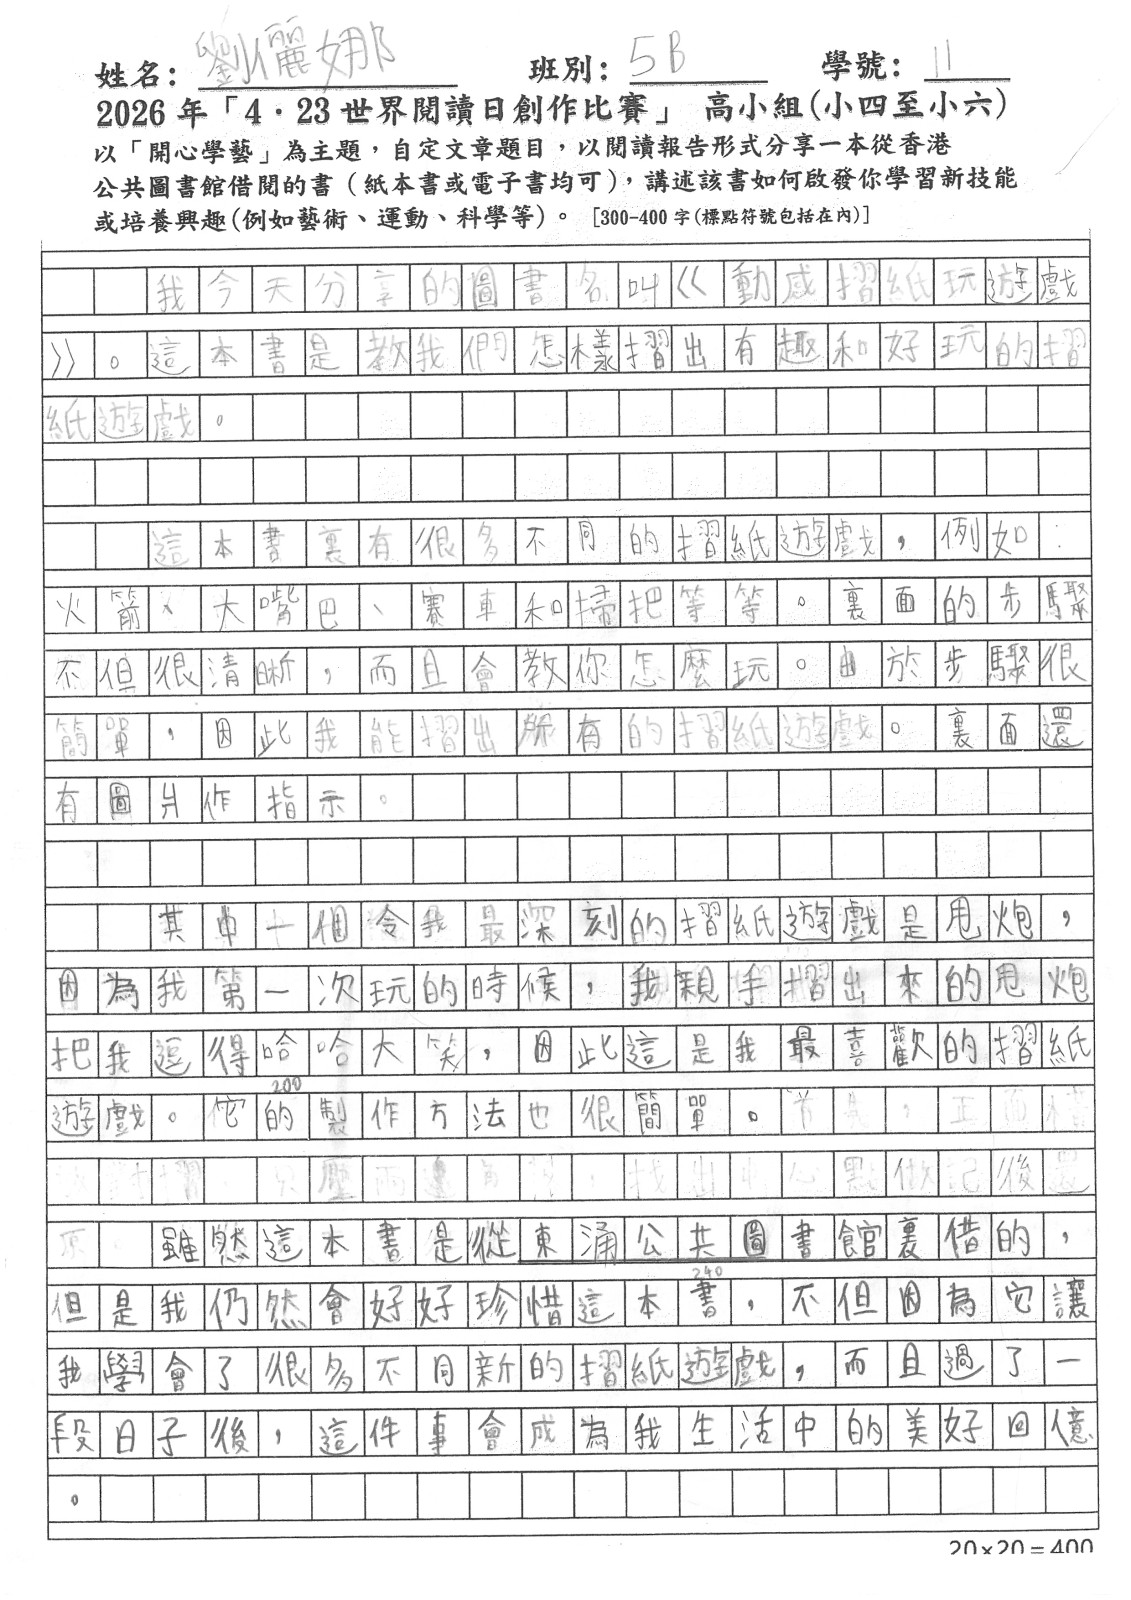 姓名：劉儷娜 班別：5B 學號：11
2026年「4．23世界閱讀日創作比賽」 高小組(小四至小六)
以「開心學藝」為主題，自定文章題目，以閱讀報告形式分享一本從香港
公共圖書館借閱的書（紙本書或電子書均可），講述該書如何啟發你學習新技能
或培養興趣(例如藝術、運動、科學等)。 [300-400字(標點符號包括在內)]
我今天分享的圖書名叫《動感摺紙玩遊戲
》。這本書是教我們怎樣摺出有趣和好玩的摺
紙遊戲。
這本書裏有很多不同的摺紙遊戲，例如：
火箭、大嘴巴、賽車和掃把等等。裏面的步驟
不但很清晰，而且會教你怎麼玩。由於步驟很
簡單，因此我能摺出所有的摺紙遊戲。裏面還
有圖片作指示。
其中一個令我最深刻的摺紙遊戲是甩炮，
因為我第一次玩的時候，我親手摺出來的甩炮
把我逗得哈哈大笑，因此這是我最喜歡的摺紙
200
遊戲。它的製作方法也很簡單。首先，正面
摺 壓 兩 角 找出中心點做記後還
原 雖然這本書是從東涌公共圖書館裏借的，
240
但是我仍然會好好珍惜這本書，不但因為它讓
我學會了很多不同新的摺紙遊戲，而且過了一
段日子後，這件事會成為我生活中的美好回憶
。
20×20=400